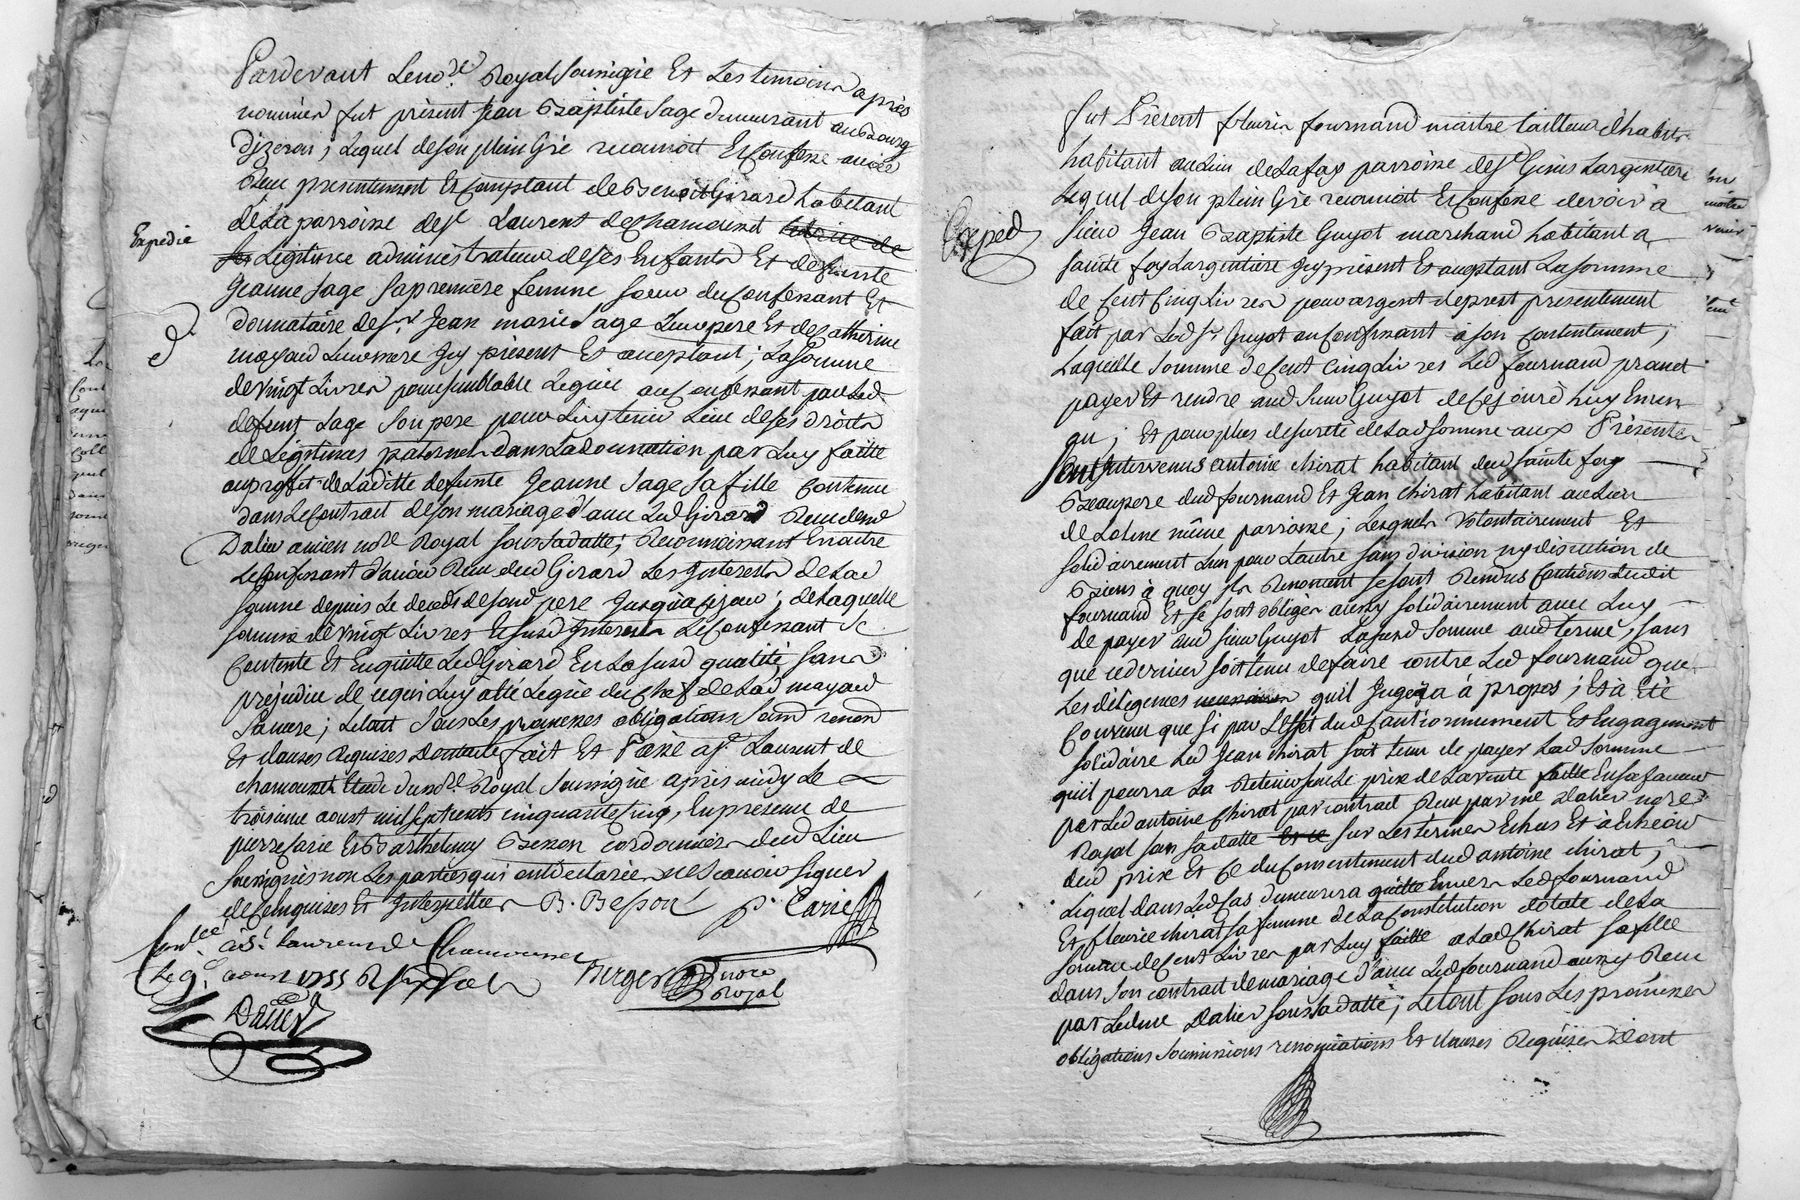 Pardevant Le no.re Royal Soussigné Et Les temoins après
nommés fut présent Jean Baptiste Sage demeurant au Bourg
Dizeron, Lequel de son plein Gré reconnoit Et Confesse avoir
Reçu presentement Et Comptant de Benoit Girard habitant
de La parroisse de St Laurent de Chamousset
Legitime administrateur de ses Enfants Et de defunte
Jeanne Sage Sa première femme Soeur du Confessant Et
donnataire de Sr. Jean marie Sage Leur pere Et de Catherine
mayaud Leur mere Icy présent Et acceptant; La Somme
de vingt Livres pour semblable Leguée au Confessant par Led.
defunt Sage Son pere pour Luy tenir Lieu de ses droits
de Légitimes paternels dans La donnation par Luy faitte
au proffit de Laditte defunte Jeanne Sage Sa fille Contenue
dans Le Contrat de son mariage d'avec Led Girard Reçu dud
Dalier ancien nore Royal sous Sa datte; Reconnoissant En outre
Le Confessant d'avoir Reçu dud Girard Les Interests de Lad
Somme depuis Le deceds de sond pere Jusqu'à ce jour; de Laquelle
somme de vingt Livres Et susd Interests Le Confessant se
Contente Et En quitte Led Girard En La susd qualité, sans
préjudice de ce qui Luy a été Legué du Chef de Lad mayaud
Sa mere; Le tout Sous Les promesses obligations Soumd renond
Et clauses Requises dont acte fait Et Passé a St Laurent de
chamousset Etude du nore Royal Soussigné après midy Le
troisieme aoust mil sept cents cinquante Cinq, En presence de
pierre Carie Et Barthelemy Besson cordonniers dud Lieu
Soussignés non Les parties qui ont déclarées ne scavoir signer
de ce Enquises Et Interpellées B. Besson P. Carie
Con.lée à St. Laurens de Chamousset
Le 9.e aoust 1755 R
Berger nore
Royal
Dalier
Expedié
Fut Présent fleurie fournand maitre tailleur d'habits
habitant au Lieu de Lafay parroisse de St Genis Largentiere
Lequel de son plein Gré reconnoit Et Confesse devoir à
Sieur Jean Baptiste Guyot marchand habitant a
Sainte foy Largentiere Icy présent Et acceptant La somme
de Cent Cinq Livres pour argent de prest presentement
fait par Led Sr Guyot au Confessant a son Contentement;
Laquelle Somme de Cent Cinq Livres Led fournand promet
payer Et rendre aud Sieur Guyot de Ce jourd'huy En un
an; Et pour plus de sureté de Lad Somme aux Présentes
Sont Intervenus antoine chirat habitant dud sainte foy
Beaupere dud fournand Et Jean chirat habitant au Lieu
de même parroisse; Lesquels volontairement Et
solidairement L'un pour L'autre sans division ny discution de
Biens à quoy ils Renoncent se sont Rendus Cautions dudit
fournand Et se sont obligés aussy solidairement avec Luy
de payer aud sieur Guyot La susd Somme aud terme, sans
que ce dernier soit tenu de faire contre Led fournand que
Les diligences qu'il Jugera à propos; Et à Eté
Convenu que si par L'effet dud Cautionnement Et Engagement
solidaire Led Jean chirat soit tenu de payer Lad Somme
qu'il pourra La Retenir sur Le prix de La vente faitte En sa faveur
par Led antoine Chirat par contrat Reçu par me Dalier nore
Royal sous sa datte sur Les termes Echus Et à Echeoir
dud prix Et Ce du Consentement dud antoine chirat;
Lequel dans Led Cas demeurera quitte Envers Led fournand
Et fleurie chirat sa femme de La Constitution dotale de La
somme de Cent Livres par Luy faitte a Lad Chirat sa fille
dans son contrat de mariage d'avec Led fournand aussy Reçu
par Led me Dalier sous sa datte; Le tout sous Les promesses
obligations soumissions renonciations Et clauses Requises Dont
Exped